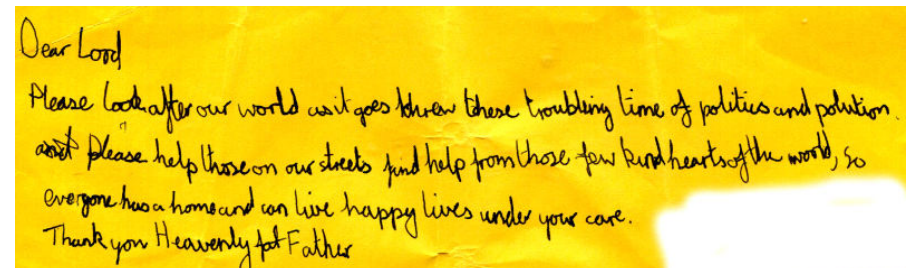 Dear Lord
Please look after our world as it goes threw these troubling time of politics and polution.
and please help those on our streets find help from those few kind hearts of the world, so
everyone has a home and can live happy lives under your care.
Thank you Heavenly fat Father